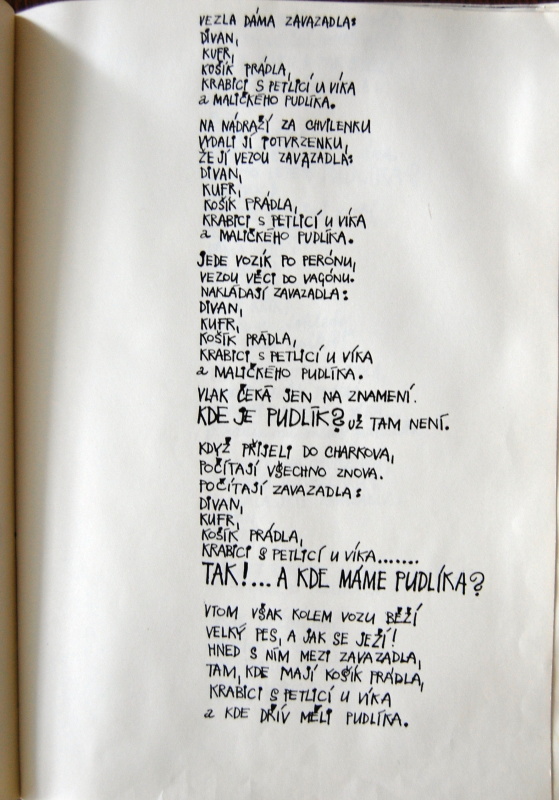 VEZLA DÁMA ZAVAZADLA:
DIVAN,
KUFR,
KOŠÍK PRÁDLA,
KRABICI S PETLICÍ U VÍKA
a MALIČKÉHO PUDLÍKA.
NA NÁDRAŽÍ ZA CHVILENKU
VYDALI JÍ POTVRZENKU,
ŽE JÍ VEZOU ZAVAZADLA:
DIVAN,
KUFR,
KOŠÍK PRÁDLA,
KRABICI S PETLICÍ U VÍKA
a MALIČKÉHO PUDLÍKA.
JEDE VOZÍK PO PERÓNU,
VEZOU VĚCI DO VAGÓNU.
NAKLÁDAJÍ ZAVAZADLA:
DIVAN,
KUFR,
KOŠÍK PRÁDLA,
KRABICI S PETLICÍ U VÍKA
a MALIČKÉHO PUDLÍKA.
VLAK ČEKÁ JEN NA ZNAMENÍ.
KDE JE PUDLÍK? UŽ TAM NENÍ.
KDYŽ PŘIJELI DO CHARKOVA,
POČÍTAJÍ VŠECHNO ZNOVA.
POČÍTAJÍ ZAVAZADLA:
DIVAN,
KUFR,
KOŠÍK PRÁDLA,
KRABICI S PETLICÍ U VÍKA.......
TAK!... A KDE MÁME PUDLÍKA?
VTOM VŠAK KOLEM VOZU BĚŽÍ
VELKÝ PES, A JAK SE JEŽÍ!
HNED S NÍM MEZI ZAVAZADLA,
TAM, KDE MAJÍ KOŠÍK PRÁDLA,
KRABICI S PETLICÍ U VÍKA
a KDE DŘÍV MĚLI PUDLÍKA.